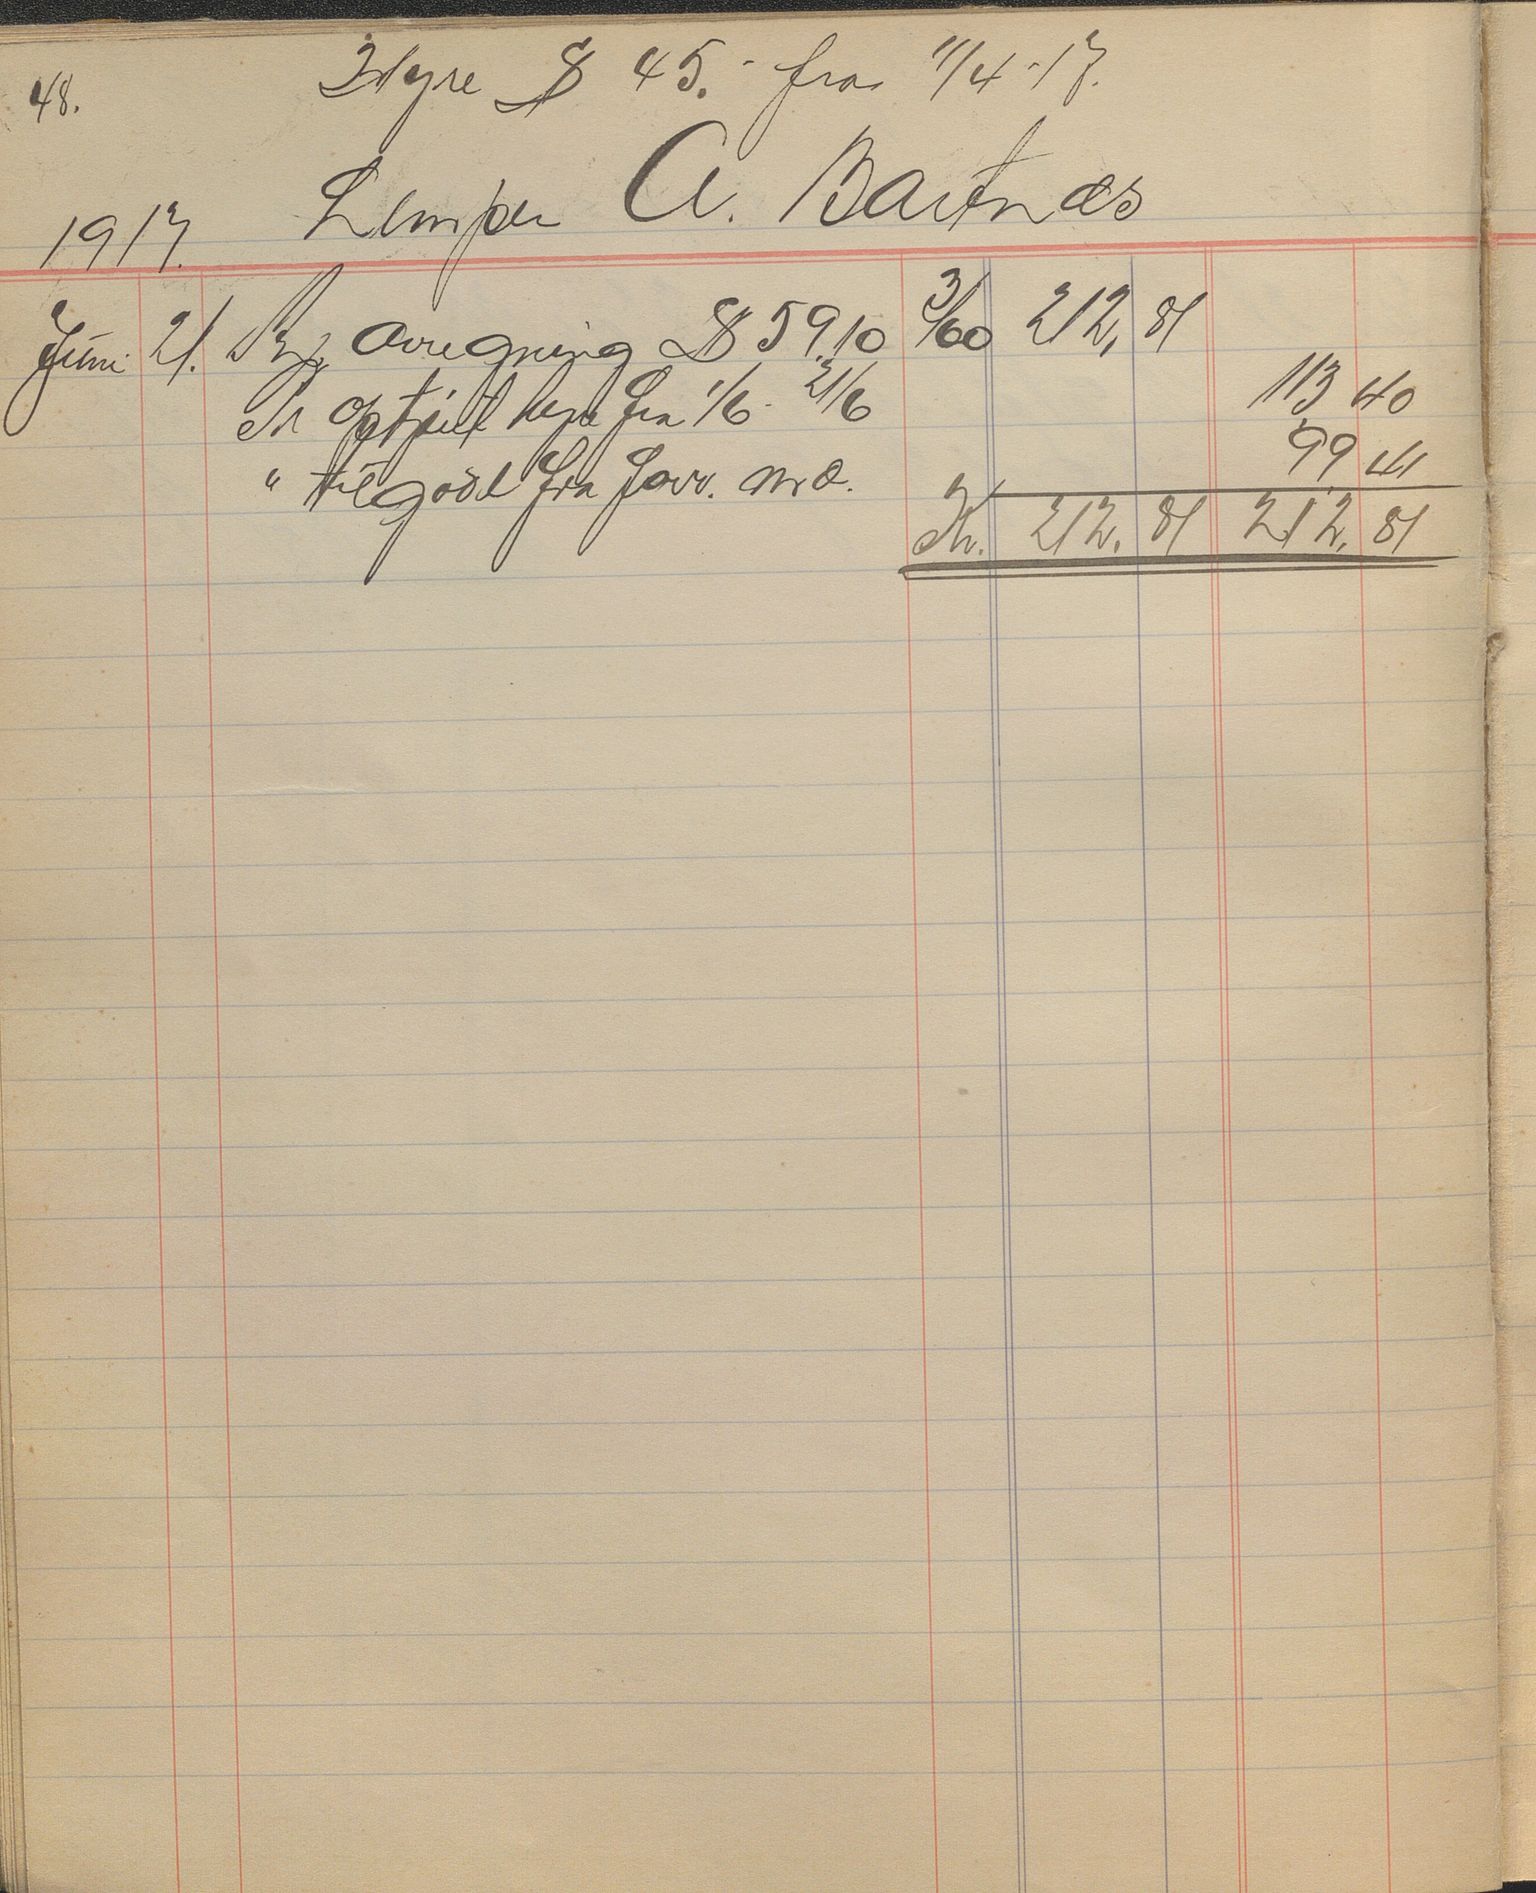 48.
Hyre $ 45.- fra 11/4-17.
Lemper A. Bartnæs
1917.
Juni 21. Pr. avregning $ 59.10 3/60 212,81
Pr optjent hyre fra 1/6 - 21/6 113 40
" tilgode fra forr. md. 99 41
Kr. 212.81 212,81